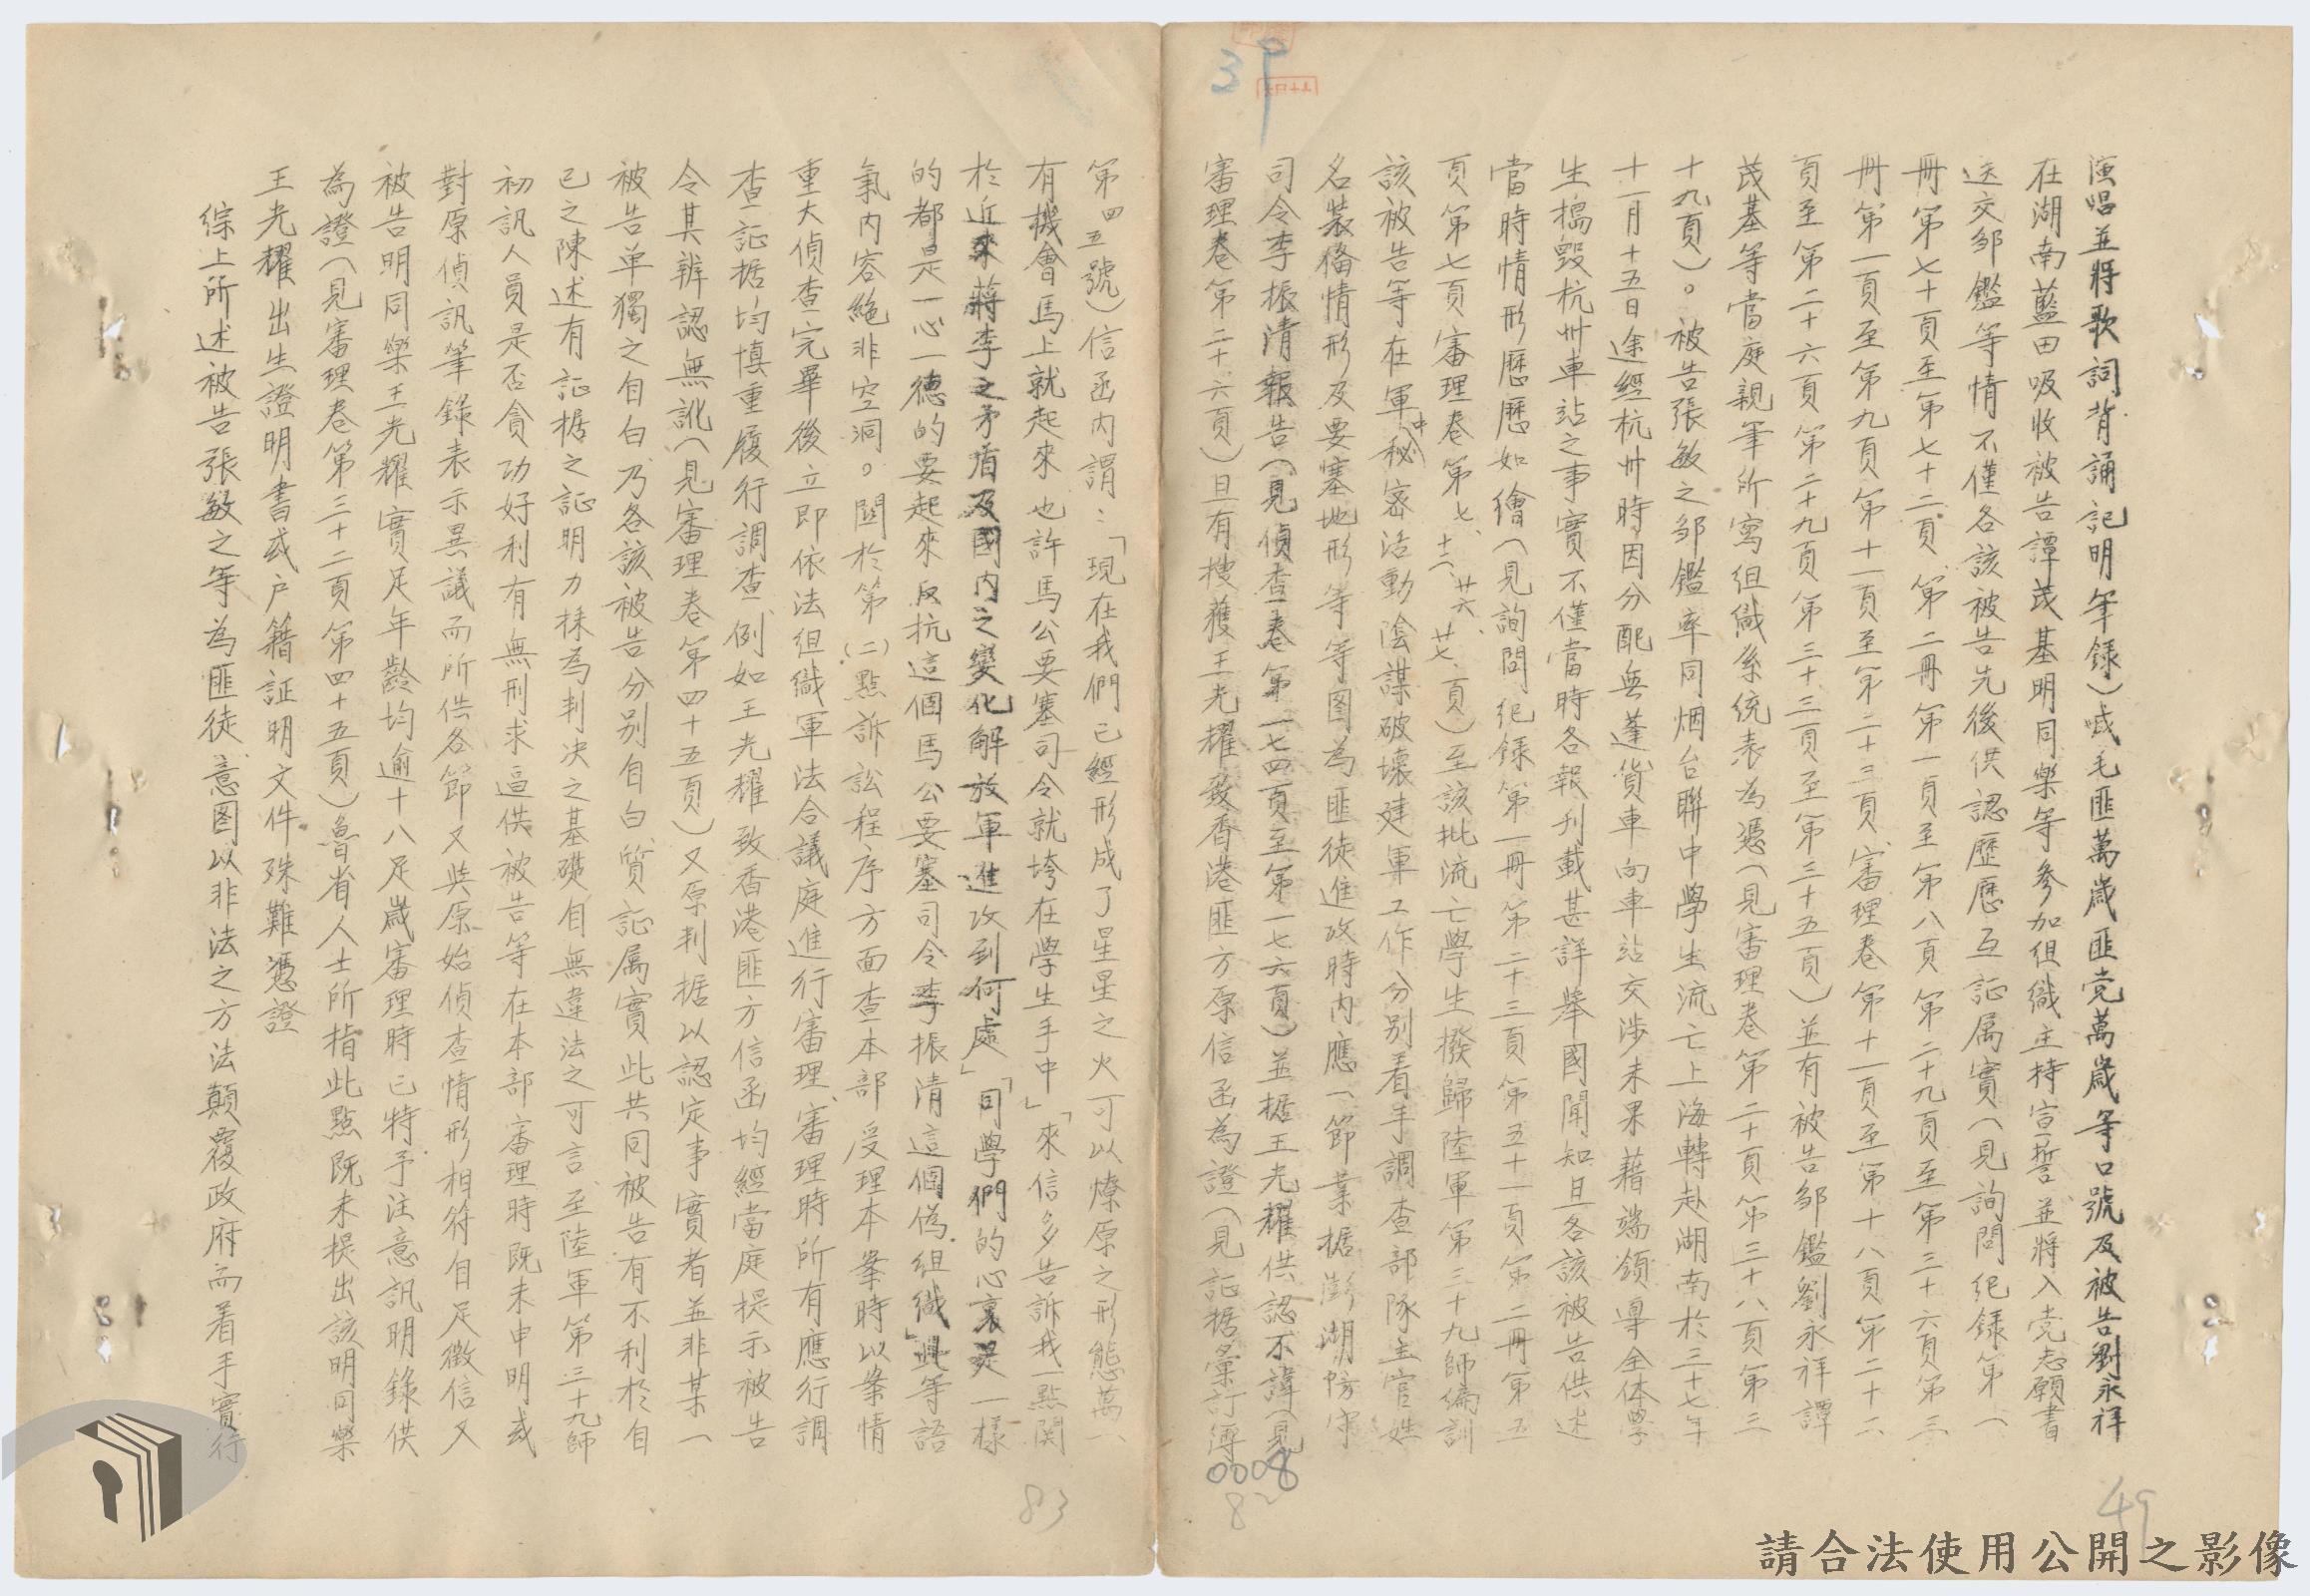 演唱並將歌詞背誦記明筆錄)喊毛匪萬歲匪党萬歲等口號及被告劉永祥
在湖南藍田吸收被告譚茂基明同樂等參加組織主持宣誓並將入党志願書
送交邹鑑等情不僅各該被告先後供認歷歷互証属實(見詢問纪錄第一
冊第七十頁至第七十二頁、第二冊第一頁至第八頁第二十九頁至第三十六頁第三
冊第一頁至第九頁第十一頁至第二十三頁、審理卷第十一頁至第十八頁第二十二
頁至第二十六頁第二十九頁第三十三頁至第三十五頁)並有被告邹鑑劉永祥譚
茂基等當庭親筆所寫组織系统表為憑(見審理卷第二十頁第三十八頁第三
十九頁)。被告張敏之邹鑑率同烟台聯中學生流亡上海轉赴湖南於三十七年
十一月十五日途經杭州時因分配無蓬货車向車站交涉未果藉端領導全体學
生搗毀杭州車站之事實不僅當時各報刊載甚詳舉國聞知且各該被告供述
當時情形歷歷如繪(見詢問纪錄第一冊第二十三頁第五十一頁第二冊第五
頁第七頁審理卷第七、十二、廿六、廿七、頁)至該批流亡學生撥歸陸軍第三十九師編訓
該被告等在軍中秘密活動陰謀破壞建軍工作分别着手調查部隊主官姓
名裝備情形及要塞地形等等图為匪徒進攻時內應一節業据澎湖防守
司令李振清報告(見偵查卷第一七四頁至第一七六頁)並据王光耀供認不諱(見
審理卷第二十六頁)且有搜獲王光耀致香港匪方原信函為證(見証据彙訂簿
0008
82
49
39
第四五號)信函内謂:「現在我們已經形成了星星之火可以燎原之形態萬一
有機會馬上就起來 也許馬公要塞司令就垮在學生手中」「來信多告訴我一點関
於近來蔣李之矛盾及國内之變化解放軍進攻到何處」「同學們的心裏是一樣
的都是一心一德的要起來反抗這個馬公要塞司令李振清這個偽组織」此等語
氣内容絕非空洞。関於第(二)點訴訟程序方面查本部受理本案時以案情
重大偵查完畢後立即依法组織軍法合議庭進行審理、審理時所有應行調
查証据均慎重履行調查、例如王光耀致香港匪方信函均經當庭提示被告
令其辨認無訛(見審理卷第四十五頁)又原判据以認定事實者並非某一
被告单獨之自白乃各該被告分别自白、質証属實此共同被告有不利於自
己之陳述有証据之証明力採為判决之基礎自無違法之可言、至陸軍第三十九師
初訊人員是否貪功好利有無刑求逼供被告等在本部審理時既未申明或
對原偵訊筆錄表示異議而所供各節又與原始偵查情形相符自足徵信又
被告明同樂王光耀實足年齡均逾十八足歲審理時已特予注意訊明錄供
為證(見審理卷第三十二頁第四十五頁)魯省人士所指此點既未提出該明同樂
王光耀出生證明書或户籍証明文件殊難憑證
綜上所述被告張敏之等為匪徒、意图以非法之方法顛覆政府而着手實行
83
請合法使用公開之影像